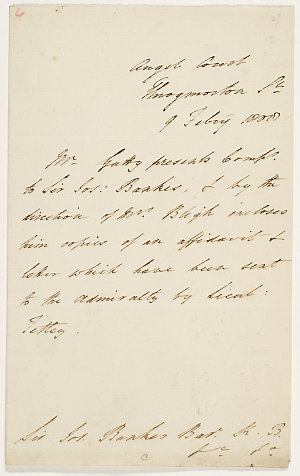 Angel Court
Throgmorton St
9 Febry 1808
Mr. Gatty presents Compts.
to Sir Jos: Bankes, & by the
direction of Mrs. Bligh incloses
him copies of an affidavit &
letter which have been sent
to the Admiralty by Lieut:
Tetley.
Sir Jos. Bankes Bart. K. B.
&c &c